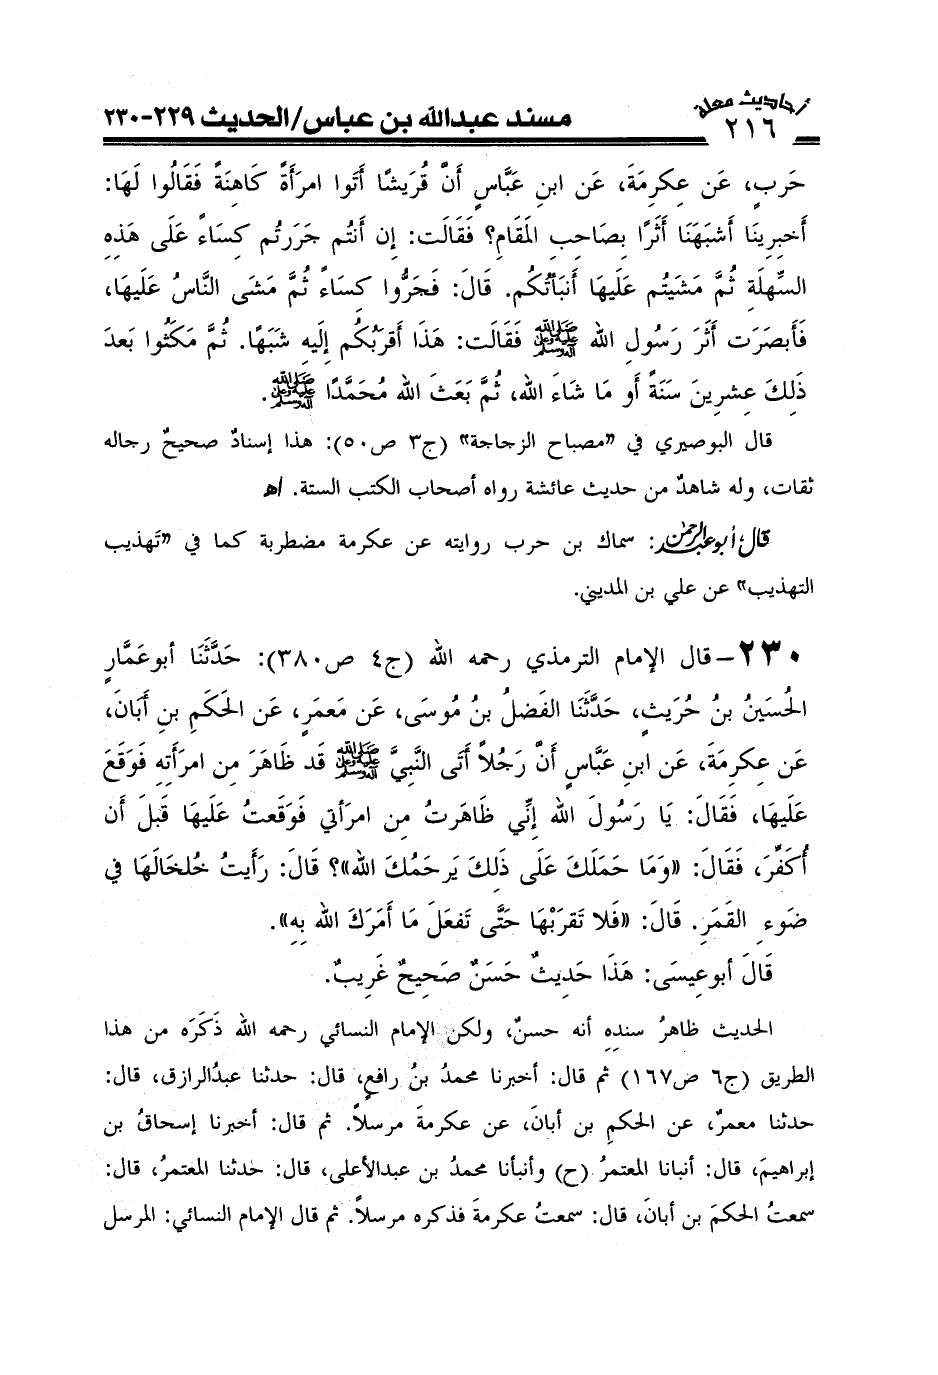 أحاديث معلة
٢١٦
مسند عبدالله بن عباس/الحديث ٢٢٩-٢٣٠
حَربٍ، عَن عِكرِمَةَ، عَن ابنِ عَبَّاسٍ أَنَّ قُرَيشًا أَتَوا امرَأَةً كَاهِنَةً فَقَالُوا لَهَا:
أَخبِرِينَا أَشبَهَنَا أَثَرًا بِصَاحِبِ المَقَامِ؟ فَقَالَت: إِن أَنتُم جَرَرتُم كِسَاءً عَلَى هَذِهِ
السِّهلَةِ ثُمَّ مَشَيتُم عَلَيهَا أَنبَأتُكُم. قَالَ: فَجَرُّوا كِسَاءً ثُمَّ مَشَى النَّاسُ عَلَيهَا،
فَأَبصَرَت أَثَرَ رَسُولِ الله ﷺ فَقَالَت: هَذَا أَقرَبُكُم إِلَيهِ شَبَهًا. ثُمَّ مَكَثُوا بَعدَ
ذَلِكَ عِشرِينَ سَنَةً أَو مَا شَاءَ الله، ثُمَّ بَعَثَ الله مُحَمَّدًا ﷺ.
قال البوصيري في "مصباح الزجاجة" (ج٣ ص٥٠): هذا إسنادٌ صحيحٌ رجاله
ثقات، وله شاهدٌ من حديث عائشة رواه أصحاب الكتب الستة. اهـ
قال أبو عبد الرحمن: سماك بن حرب روايته عن عكرمة مضطربة كما في "تهذيب
التهذيب" عن علي بن المديني.
٢٣٠- قال الإمام الترمذي رحمه الله (ج٤ ص٣٨٠): حَدَّثَنَا أبوعَمَّارٍ
الحُسَينُ بنُ حُرَيثٍ، حَدَّثَنَا الفَضلُ بنُ مُوسَى، عَن مَعمَرٍ، عَن الحَكَمِ بنِ أَبَانَ،
عَن عِكرِمَةَ، عَن ابنِ عَبَّاسٍ أَنَّ رَجُلاً أَتَى النَّبِيَّ ﷺ قَد ظَاهَرَ مِن امرَأَتِهِ فَوَقَعَ
عَلَيهَا، فَقَالَ: يَا رَسُولَ الله إِنِّي ظَاهَرتُ مِن امرَأَتي فَوَقَعتُ عَلَيهَا قَبلَ أَن
أُكَفِّرَ، فَقَالَ: «وَمَا حَمَلَكَ عَلَى ذَلِكَ يَرحَمُكَ الله»؟ قَالَ: رَأَيتُ خُلخَالَهَا في
ضَوءِ القَمَرِ. قَالَ: «فَلا تَقرَبْهَا حَتَّى تَفعَلَ مَا أَمَرَكَ الله بِهِ».
قَالَ أبوعِيسَى: هَذَا حَدِيثٌ حَسَنٌ صَحِيحٌ غَرِيبٌ.
الحديث ظاهرُ سندِه أنه حسنٌ، ولكن الإمام النسائي رحمه الله ذَكَرَه من هذا
الطريق (ج٦ ص١٦٧) ثم قال: أخبرنا محمدُ بنُ رافعٍ، قال: حدثنا عبدُالرازق، قال:
حدثنا معمرٌ، عن الحكمِ بن أبانَ، عن عكرمةَ مرسلاً. ثم قال: أخبرنا إسحاقُ بن
إبراهيمَ، قال: أنبانا المعتمرُ (ح) وأنبأنا محمدُ بن عبدالأعلى، قال: حدثنا المعتمرُ، قال:
سمعتُ الحكمَ بن أبانَ، قال: سمعتُ عكرمةَ فذكره مرسلاً. ثم قال الإمام النسائي: المرسل